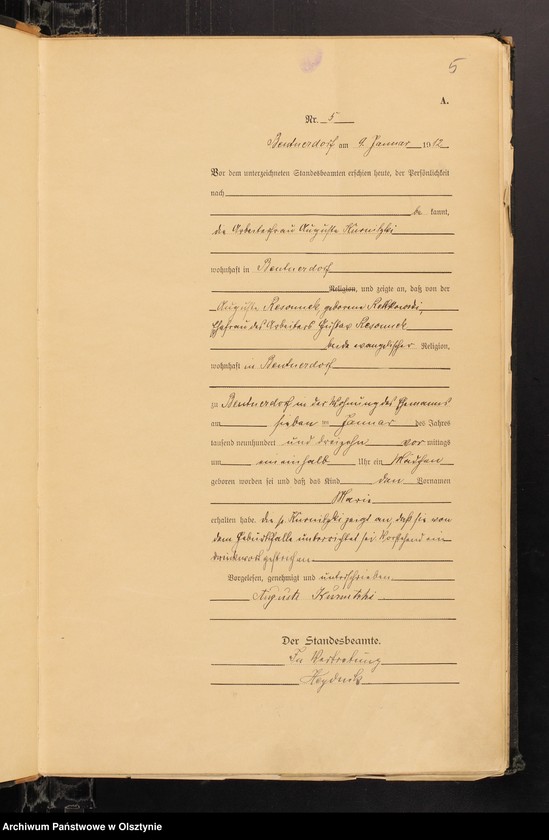 5
A.
Nr. 5
am 9. Januar 1912
Vor dem unterzeichneten Standesbeamten erschien heute, der Persönlichkeit
nach
be kannt,
die Arbeiterfrau Auguste Kurnitzki
wohnhaft in
Religion, und zeigte an, daß von der
Auguste geborene
Ehefrau des Arbeiters Gustav
beide evangelischer Religion,
wohnhaft in
zu in der Wohnung des Ehemanns
am sieben ten Januar des Jahres
tausend neunhundert und dreizehn vor mittags
um eineinhalb Uhr ein Mädchen
geboren worden sei und daß das Kind den Vornamen
Marie
erhalten habe. die p. Kurnitzki zeigt an, daß sie von
dem Geburtsfalle unterrichtet sei. Vorstehend ein
Druckwort gestrichen
Vorgelesen, genehmigt und unterschrieben
Auguste Kurnitzki
Der Standesbeamte.
In Vertretung
Archiwum Państwowe w Olsztynie